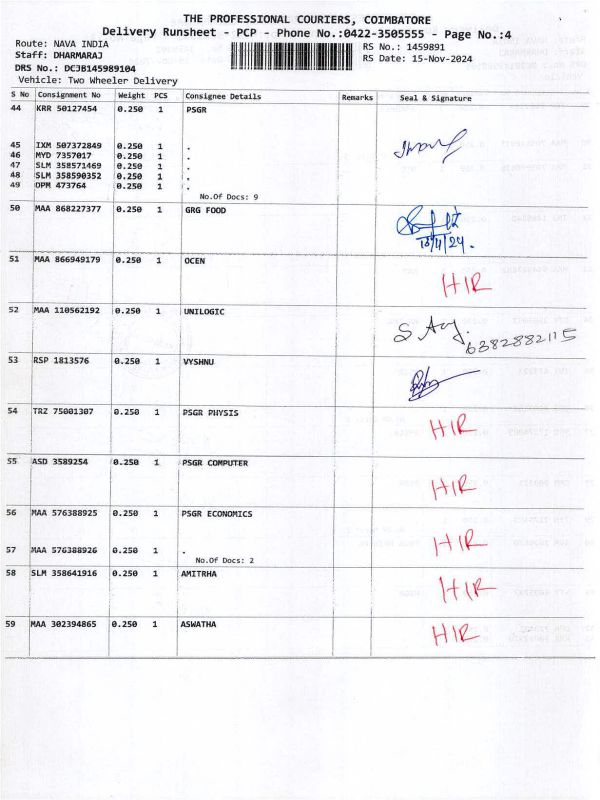 THE PROFESSIONAL COURIERS, COIMBATORE
Delivery Runsheet - PCP - Phone No.:0422-3505555 - Page No.:4
Route: NAVA INDIA
Staff: DHARMARAJ
DRS No.: DCJB145989104
Vehicle: Two Wheeler Delivery
RS No.: 1459891
RS Date: 15-Nov-2024
S No Consignment No Weight PCS Consignee Details Remarks Seal & Signature
44 KRR 50127454 0.250 1 PSGR
45 IXM 507372849 0.250 1 .
46 MYD 7357017 0.250 1 .
47 SLM 358571469 0.250 1 .
48 SLM 358590352 0.250 1 .
49 OPM 473764 0.250 1 .
No.Of Docs: 9
50 MAA 868227377 0.250 1 GRG FOOD
51 MAA 866949179 0.250 1 OCEN HIR
52 MAA 110562192 0.250 1 UNILOGIC
6382882115
53 RSP 1813576 0.250 1 VYSHNU
54 TRZ 75001307 0.250 1 PSGR PHYSIS HIR
55 ASD 3589254 0.250 1 PSGR COMPUTER HIR
56 MAA 576388925 0.250 1 PSGR ECONOMICS HIR
57 MAA 576388926 0.250 1 .
No.Of Docs: 2
58 SLM 358641916 0.250 1 AMITRHA HIR
59 MAA 302394865 0.250 1 ASWATHA HIR